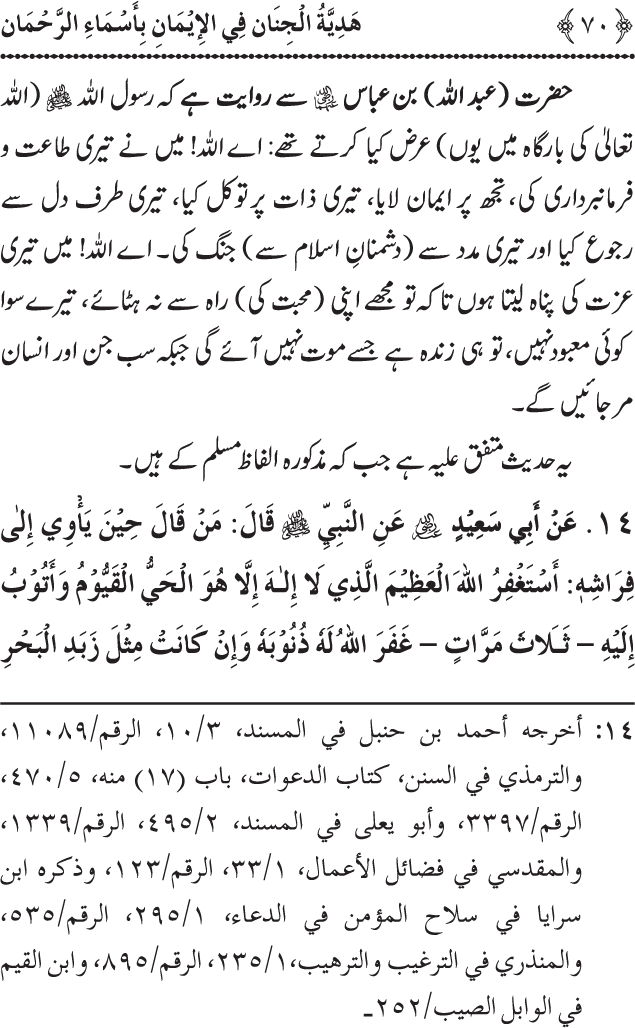 ﴿٧٠﴾ هَدِيَّةُ الْجِنَان فِي الإِيْمَانِ بِأَسْمَاءِ الرَّحْمَان
حضرت (عبد اللہ) بن عباس ؓ سے روایت ہے کہ رسول اللہ ﷺ (اللہ
تعالیٰ کی بارگاہ میں یوں) عرض کیا کرتے تھے: اے اللہ! میں نے تیری طاعت و
فرمانبرداری کی، تجھ پر ایمان لایا، تیری ذات پر توکل کیا، تیری طرف دل سے
رجوع کیا اور تیری مدد سے (دشمنانِ اسلام سے) جنگ کی۔ اے اللہ! میں تیری
عزت کی پناہ لیتا ہوں تاکہ تو مجھے اپنی (محبت کی) راہ سے نہ ہٹائے، تیرے سوا
کوئی معبود نہیں، تو ہی زندہ ہے جسے موت نہیں آئے گی جبکہ سب جن اور انسان
مر جائیں گے۔
یہ حدیث متفق علیہ ہے جب کہ مذکورہ الفاظ مسلم کے ہیں۔
١٤. عَنْ أَبِي سَعِيْدٍ ؓ عَنِ النَّبِيِّ ﷺ قَالَ: مَنْ قَالَ حِيْنَ يَأْوِي إِلَى
فِرَاشِهِ: أَسْتَغْفِرُ اللهَ الْعَظِيْمَ الَّذِي لَا إِلٰهَ إِلَّا هُوَ الْحَيُّ الْقَيُّوْمُ وَأَتُوْبُ
إِلَيْهِ – ثَلَاثَ مَرَّاتٍ – غَفَرَ اللهُ لَهُ ذُنُوْبَهُ وَإِنْ كَانَتْ مِثْلَ زَبَدِ الْبَحْرِ
١٤: أخرجه أحمد بن حنبل في المسند، ١٠/٣، الرقم/١١٠٨٩،
والترمذي في السنن، كتاب الدعوات، باب (١٧) منه، ٤٧٠/٥،
الرقم/٣٣٩٧، وأبو يعلى في المسند، ٤٩٥/٢، الرقم/١٣٣٩،
والمقدسي في فضائل الأعمال، ٣٣/١، الرقم/١٢٣، وذكره ابن
سرايا في سلاح المؤمن في الدعاء، ٢٩٥/١، الرقم/٥٣٥،
والمنذري في الترغيب والترهيب، ٢٣٥/١، الرقم/٨٩٥، وابن القيم
في الوابل الصيب/٢٥٢ـ